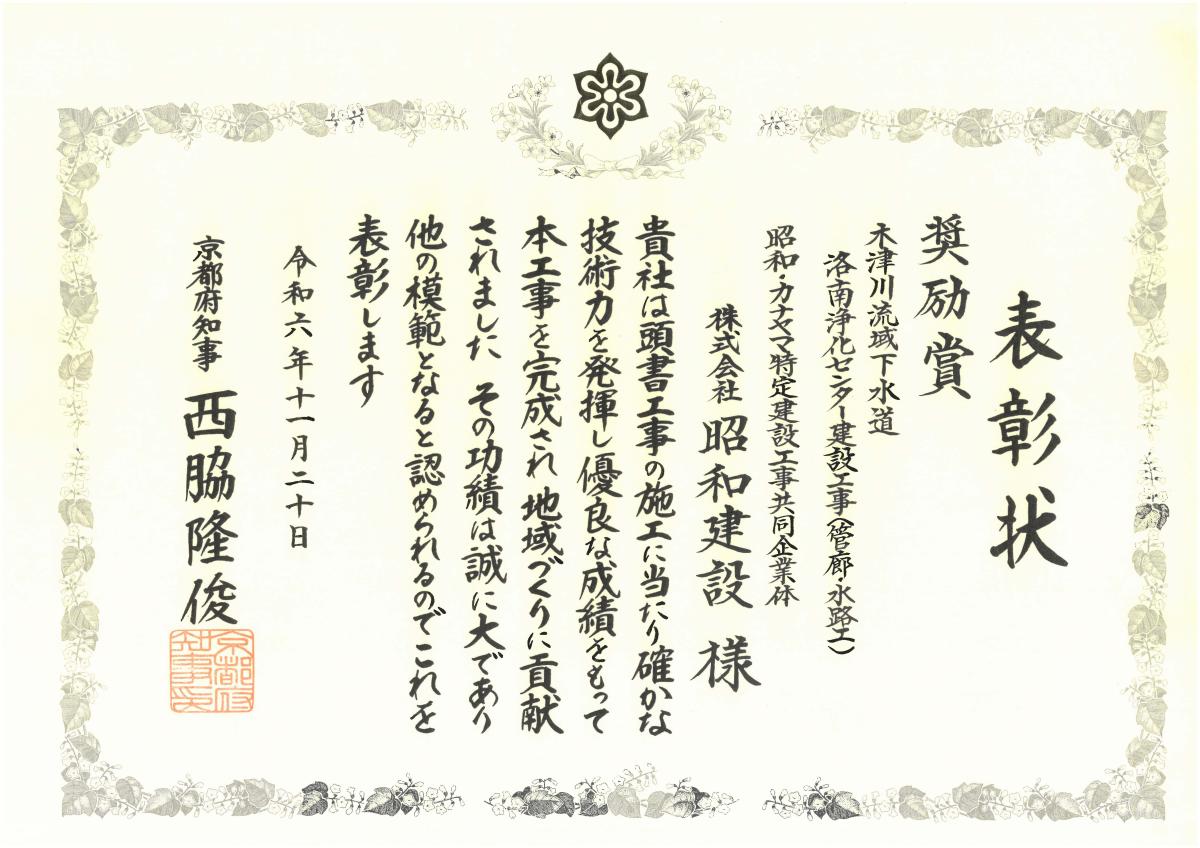 表彰状
奨励賞
木津川流域下水道
洛南浄化センター建設工事(管廊・水路工)
昭和・カナヤマ特定建設工事共同企業体
株式会社 昭和建設 様
貴社は頭書工事の施工に当たり確かな
技術力を発揮し優良な成績をもって
本工事を完成され地域づくりに貢献
されました その功績は誠に大であり
他の模範となると認められるのでこれを
表彰します
令和六年十一月二十日
京都府知事 西脇隆俊
京都府
知事之印